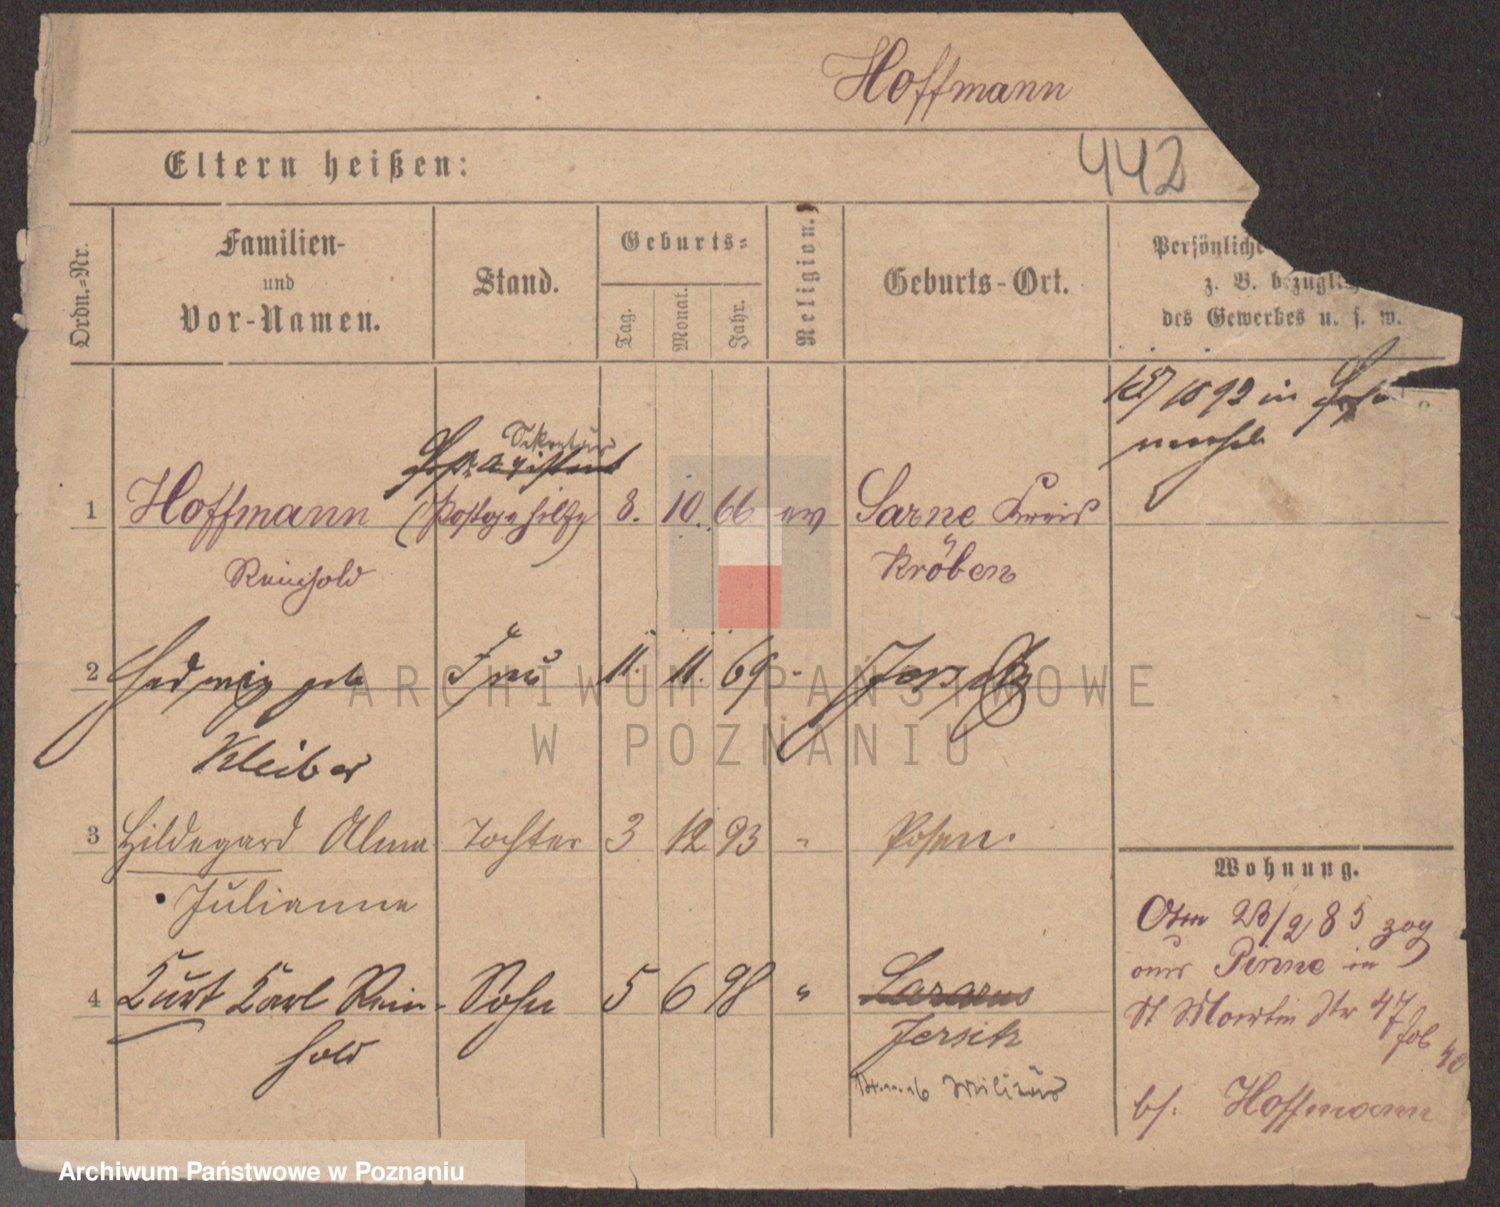 Hoffmann
442
Eltern heißen:
Ordn.-Nr.
Familien-
und
Vor-Namen.
Stand.
Geburts-
Tag.
Monat.
Jahr.
Religion.
Geburts-Ort.
Persönliche
z. B. bezügl.
des Gewerbes u. s. w.
1892 in
Sekretär
Postassistent
1 Hoffmann (Postgehilfe) 8. 10. 66 ev Sarne Kreis
Reinhold Kröben
2 Hedwig geb Frau 11. 11. 69 - Jersitz
Kleiber
3 Hildegard Alma Tochter 3 12 93 " Posen.
Julianne
4 Kurt Karl Rein- Sohn 5 6 98 " Lazarus
hold Jersitz
Militär
Wohnung.
23/2 85 zog
aus Pinne in
St Martin Str 47
bs. Hoffmann
ARCHIWUM PAŃSTWOWE
W POZNANIU
Archiwum Państwowe w Poznaniu